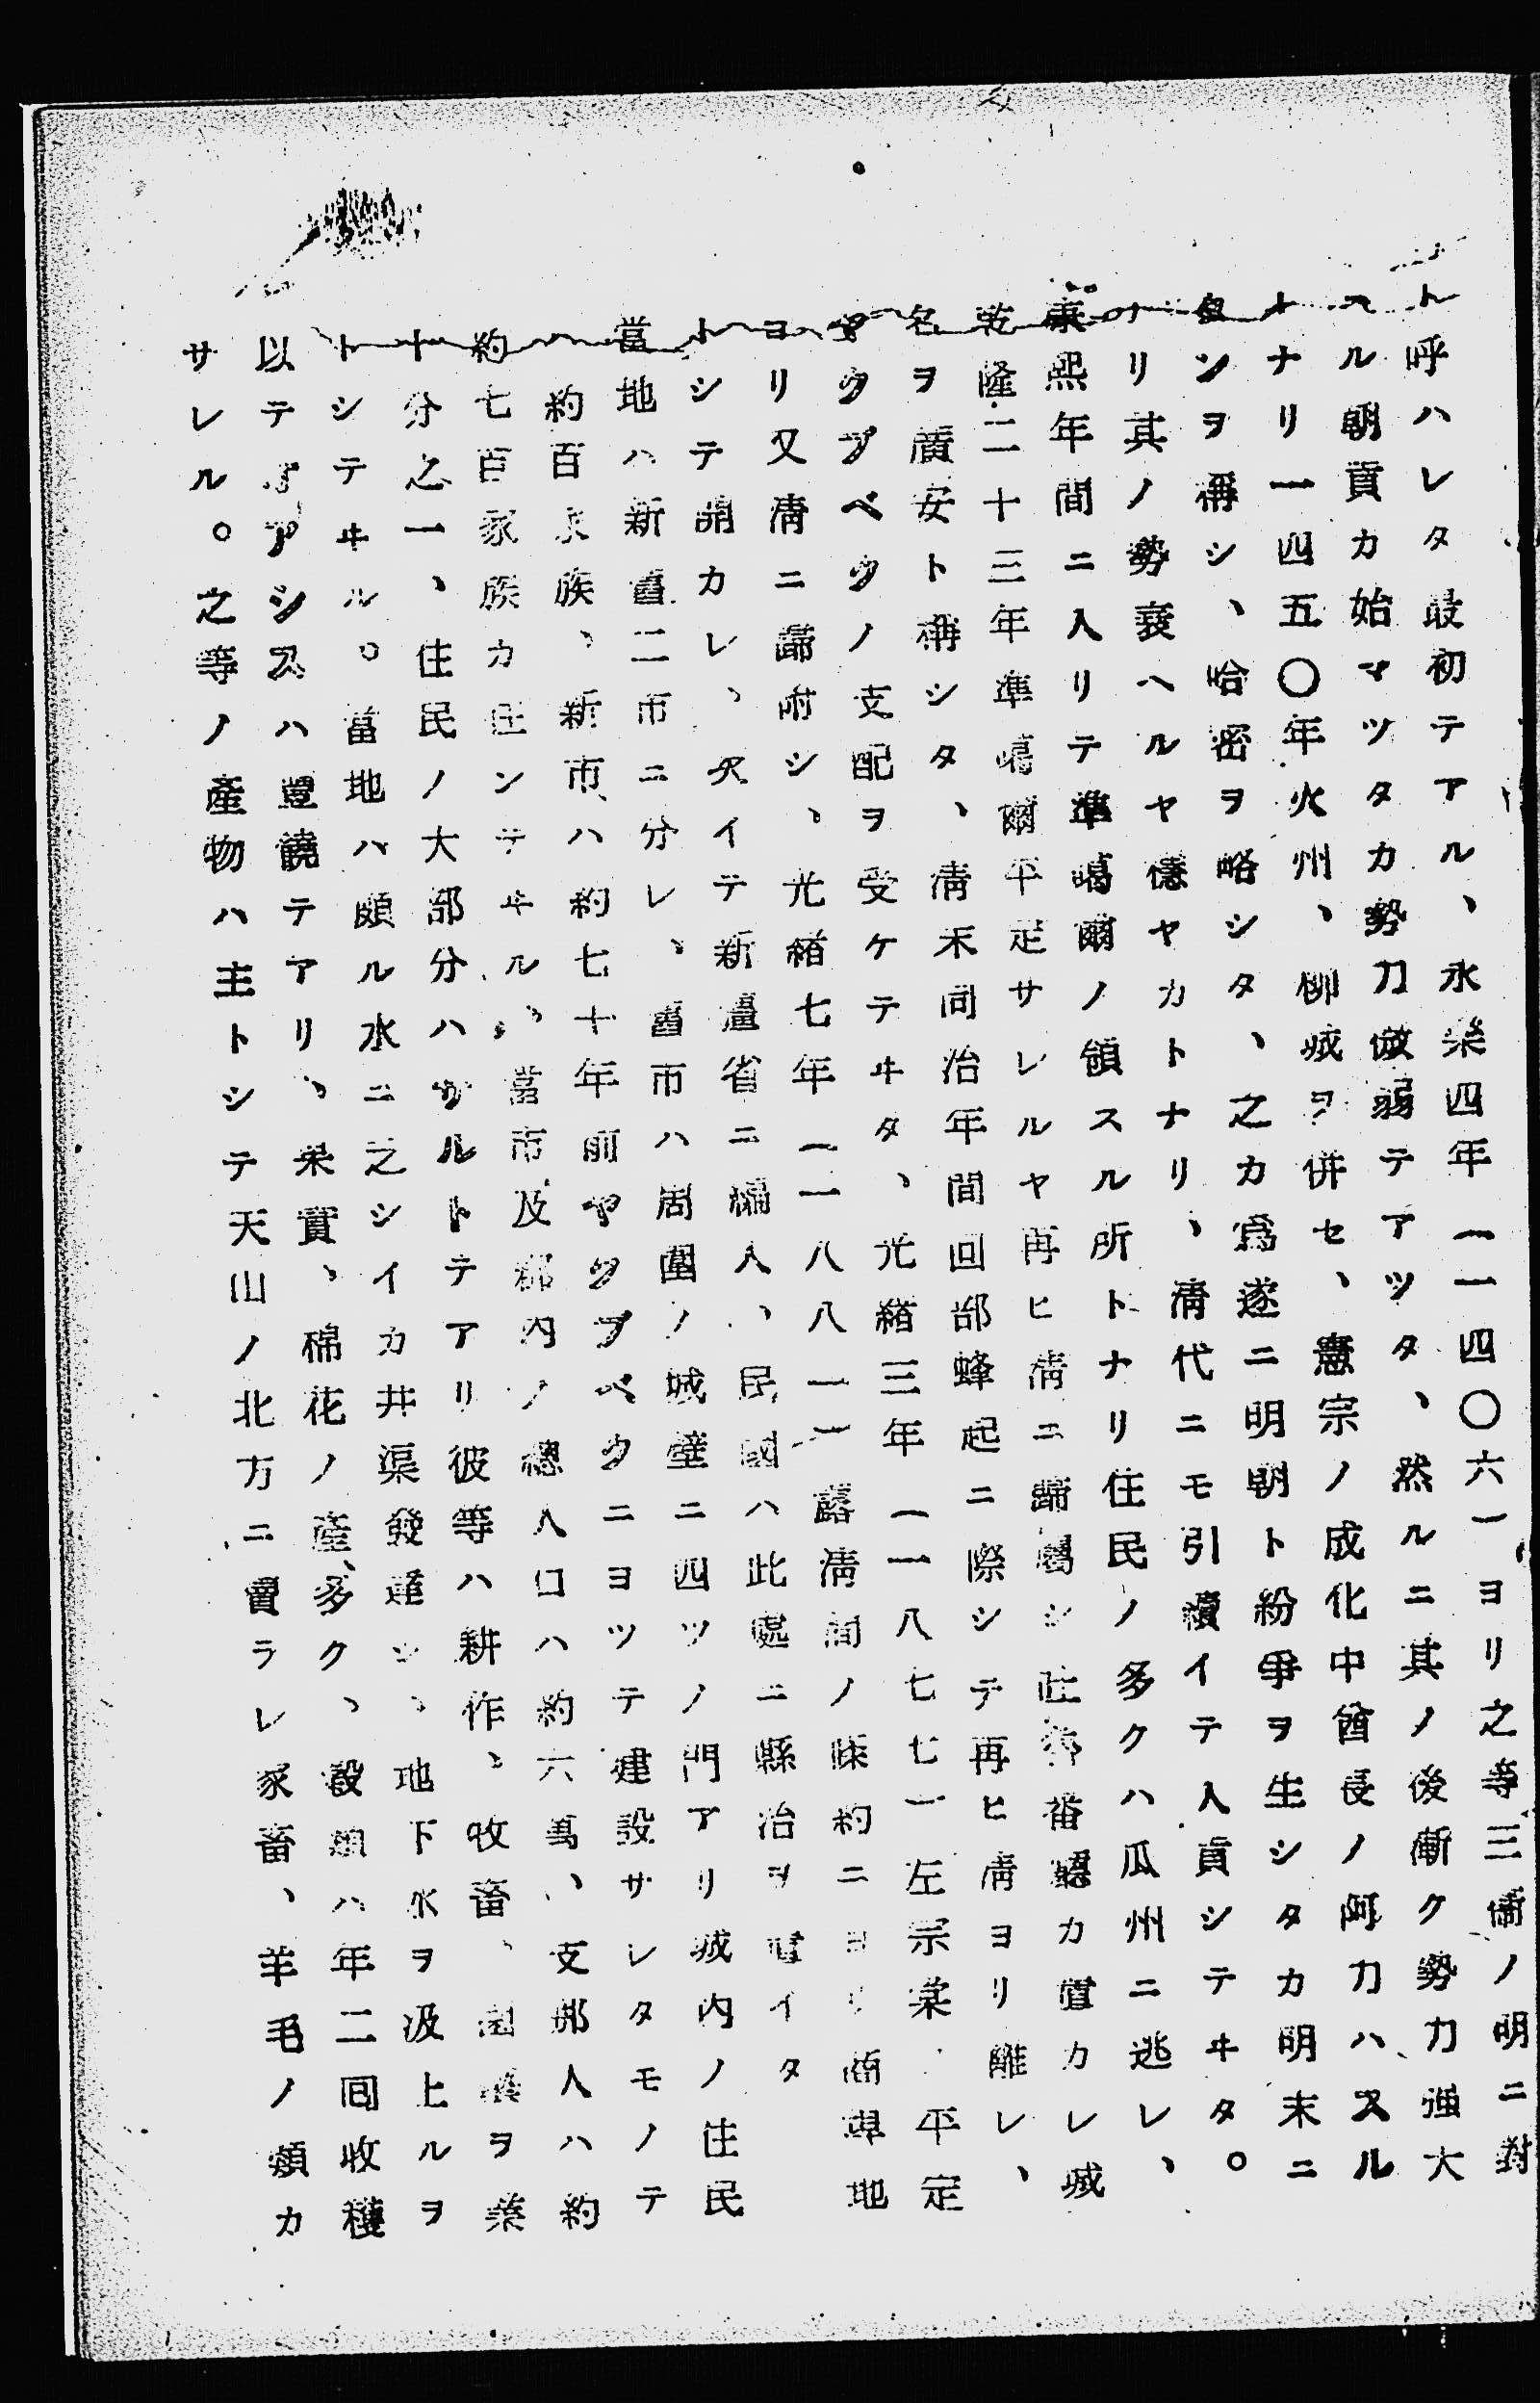 ト呼ハレタ最初テアル、永樂四年（一四〇六）ヨリ之等三衞ノ明ニ對
スル朝貢カ始マツタカ勢力微弱テアツタ、然ルニ其ノ後漸ク勢力强大
トナリ一四五〇年火州、柳城ヲ併セ、憲宗ノ成化中酋長ノ阿力ハスル
タンヲ稱シ、哈密ヲ略シタ、之カ爲遂ニ明朝ト紛爭ヲ生シタカ明末ニ
ナリ其ノ勢衰ヘルヤ穩ヤカトナリ、淸代ニモ引續イテ入貢シテヰタ。
康熙年間ニ入リテ準噶爾ノ領スル所トナリ住民ノ多クハ瓜州ニ逃レ、
乾隆二十三年準噶爾平定サレルヤ再ヒ淸ニ歸屬シ吐魯番廳カ置カレ城
名ヲ廣安ト稱シタ、淸末同治年間回部蜂起ニ際シテ再ヒ淸ヨリ離レ、
ヤクブベクノ支配ヲ受ケテヰタ、光緖三年（一八七七）左宗棠 平定
ヨリ又淸ニ歸附シ、光緖七年（一八八一）露淸間ノ條約ニヨリ商埠地
トシテ開カレ、次イテ新疆省ニ編入、民國ハ此處ニ縣治ヲ置イタ
當地ハ新舊二市ニ分レ、舊市ハ周圍ノ城壁ニ四ツノ門アリ城内ノ住民
ハ約百家族、新市ハ約七十年前ヤクブベクニヨツテ建設サレタモノテ
約七百家族カ住ンテヰル、當市及郷内ノ總人口ハ約六萬、支那人ハ約
十分之一、住民ノ大部分ハサルトテアリ彼等ハ耕作、牧畜、園藝ヲ業
トシテヰル。當地ハ頗ル水ニ乏シイカ井渠發達シ、地下水ヲ汲上ルヲ
以テオアシスハ豐饒テアリ、果實、棉花ノ產多ク、穀類ハ年二囘收穫
サレル。之等ノ產物ハ主トシテ天山ノ北方ニ賣ラレ家畜、羊毛ノ類カ